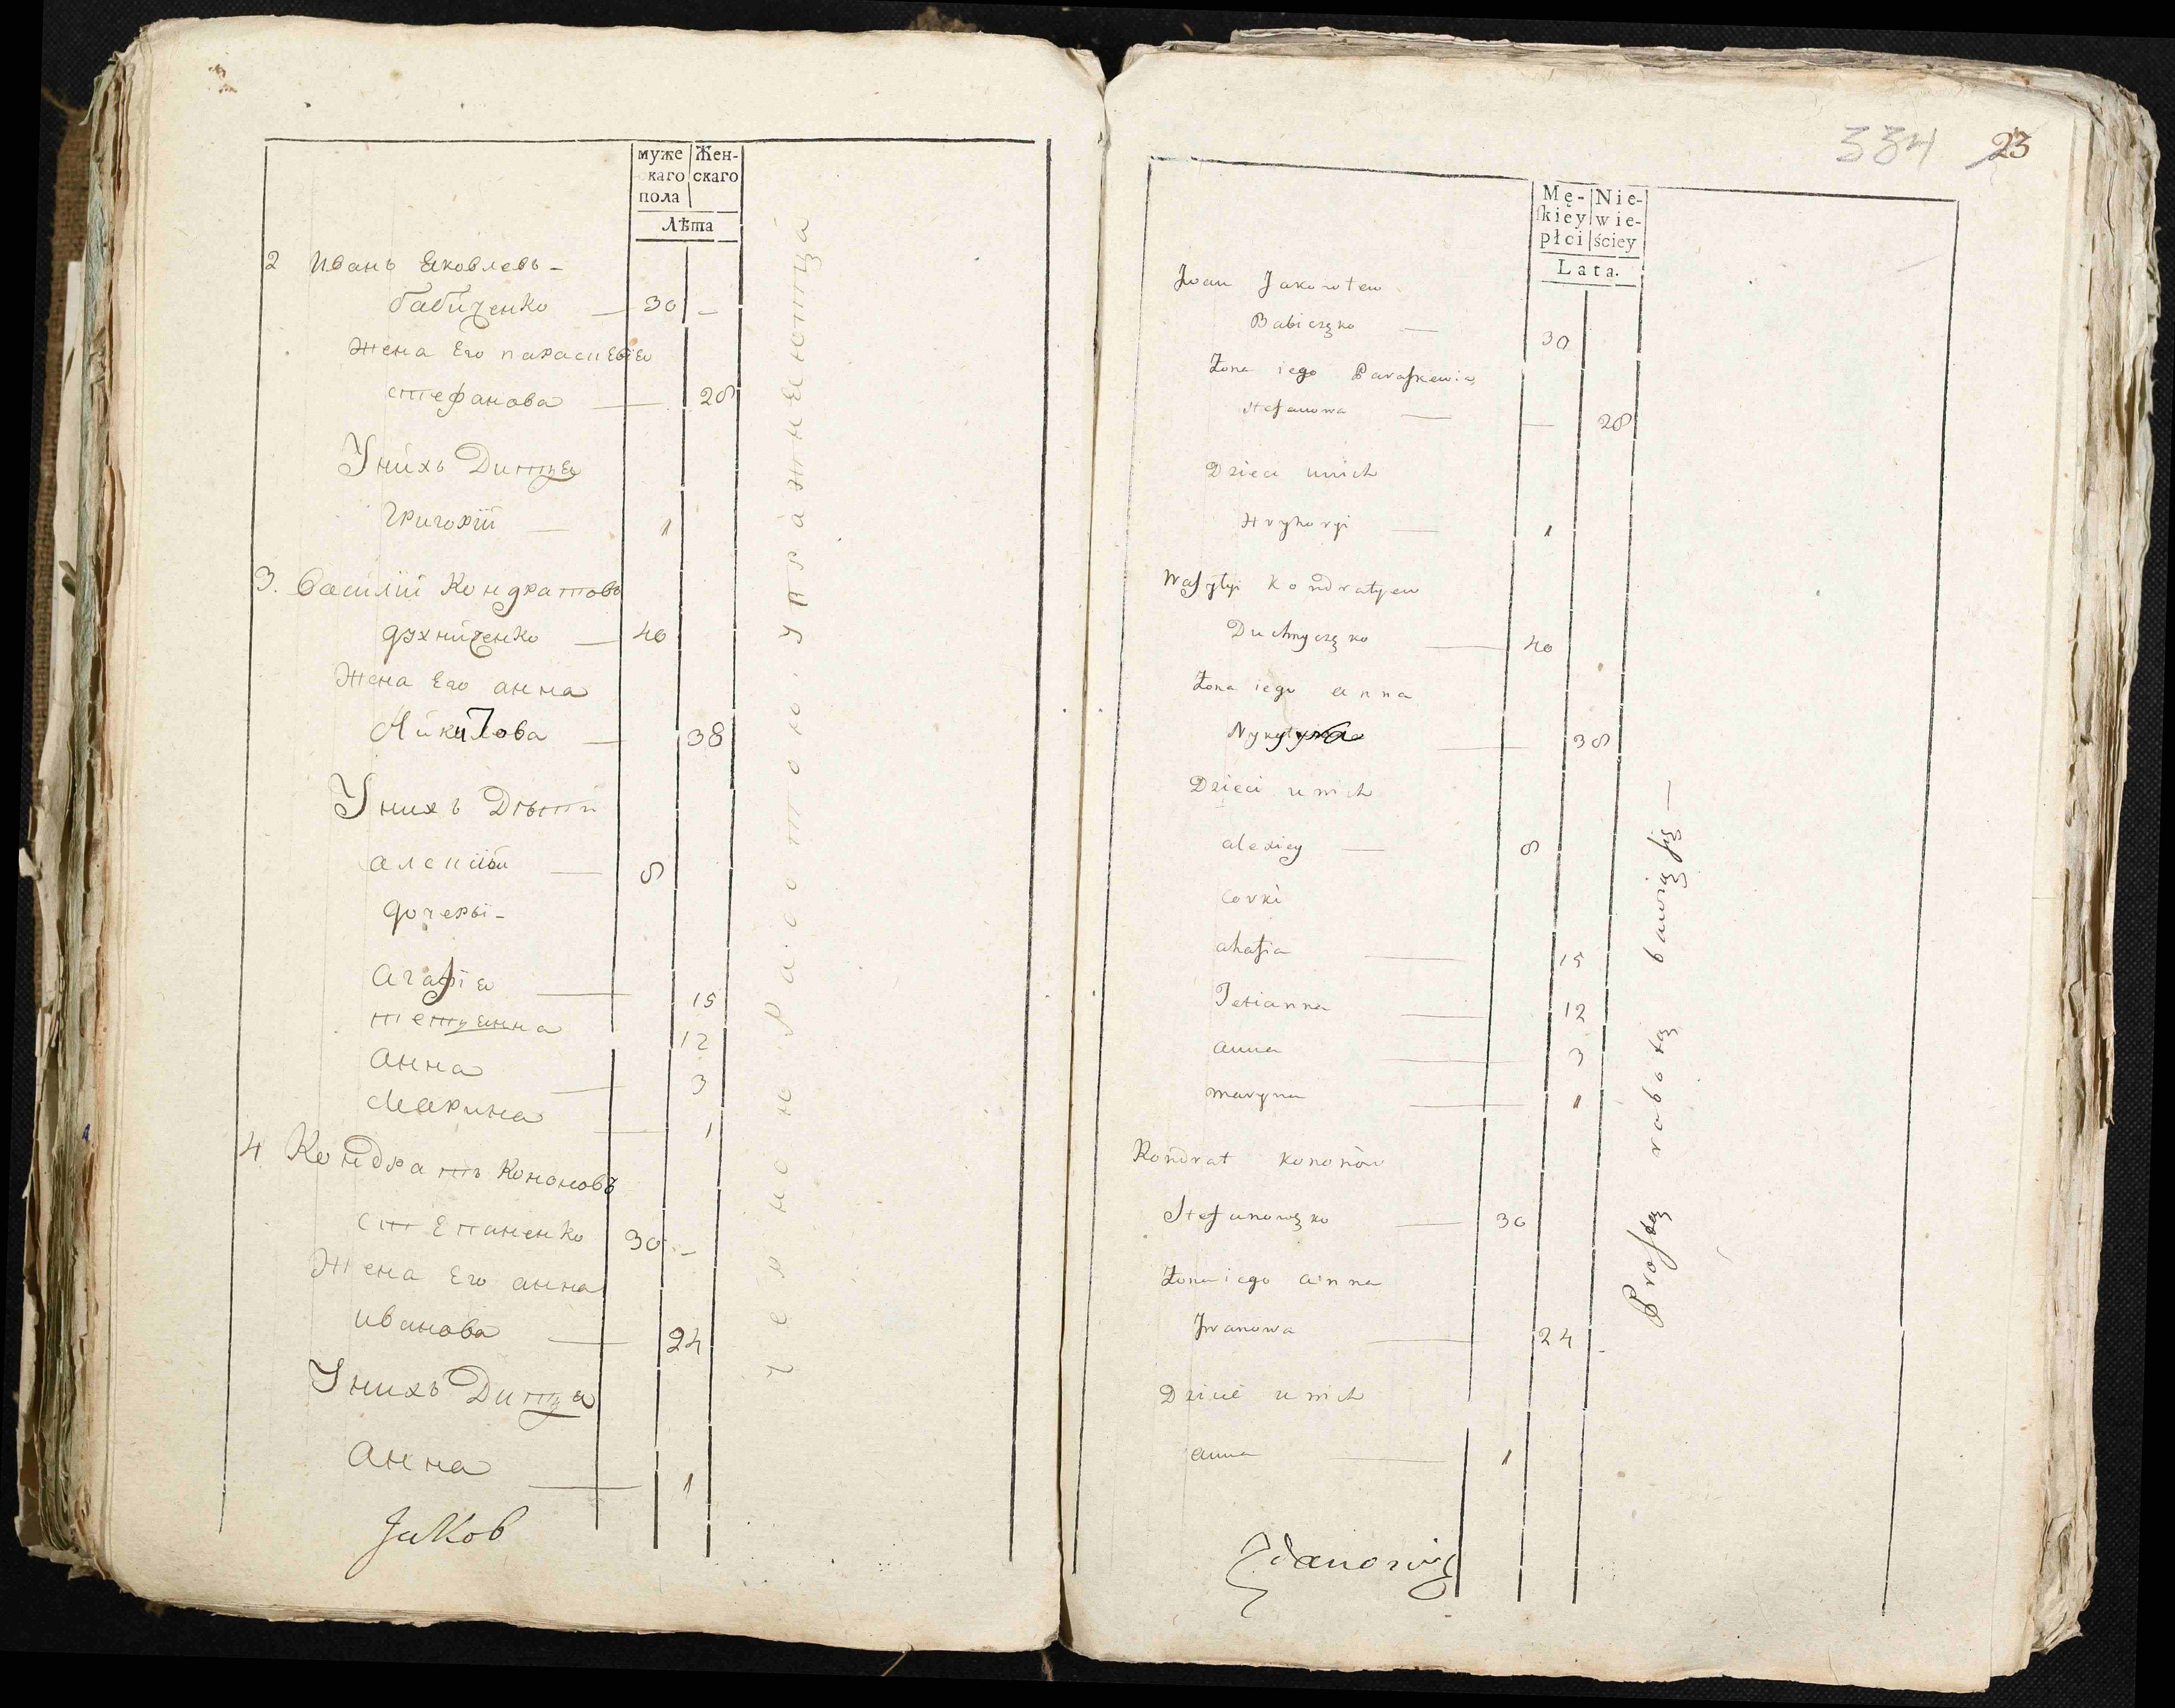 муже
скаго
пола
Жен-
скаго
Лѣта
2 Иванъ Яковлевъ -
бабиченко — 30 —
Жена Его параскевія
стефанова — 28
Унихъ Дитя
Григорій — 1
3. Василій Кондратовъ
духниченко — 40
Жена Его анна
Никитова — 38
Унихъ Дѣти
алексій — 8
дочеры -
агафія — 15
тетянна 12
анна — 3
Марина — 1
4 Кондратъ Кононовъ
степаненко 30 —
Жена Его анна
иванова — 24
Унихъ Дитя
анна — 1
Jakob
черною работою упражняютца
334 23
Mę-
skiey
płci
Nie-
wie-
ściey
Lata.
Jwan Jakowlew
Babiczęko — 30
Żona iego Paraskewia
Stefanowa — — 28
Dzieci unich
Hryhoryi — 1
Wasylyi Kondratyew
Duchnyczęko — 40
Żona iego anna
Nykytyna — 38
Dzieci unich
alexiey — 8
corki
ahafia — 15
Tetianna — 12
anna — 3
maryna — 1
Kondrat kononow
Stefanowęko — 30
Żona iego anna
Jwanowa — 24
Dzicie unich
anna — 1
Zdanowicz
Prostą rabotą bawią się —